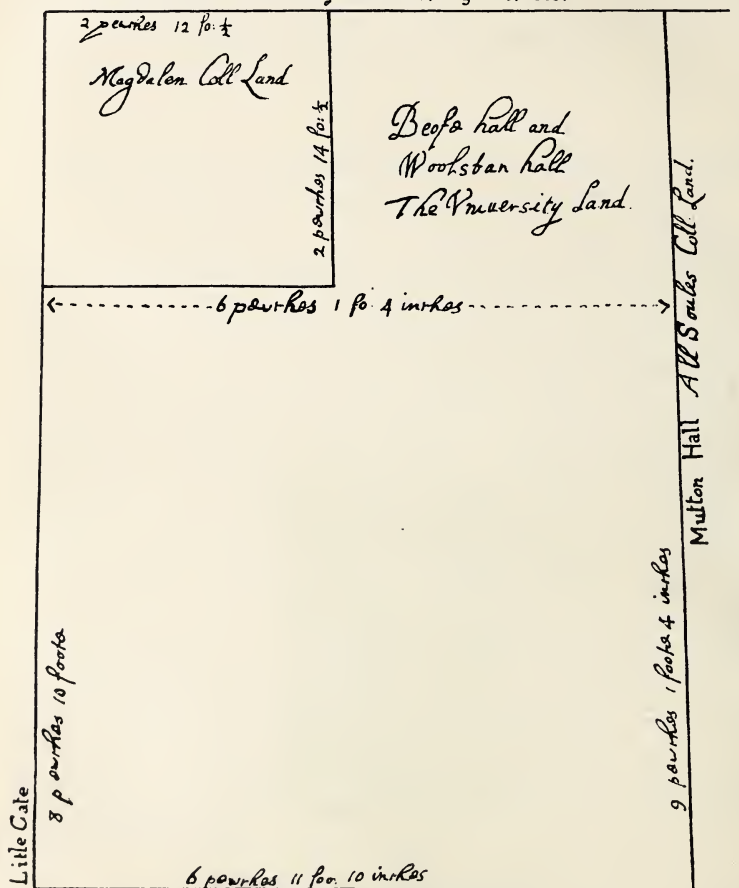 2 pearches 12 fo: ½
Magdalen Coll Land
2 pearches 14 fo: ½
Beofe hall and
Woolstan hall
The Vniuersity Land.
6 pearches 1 fo 4 inches
Mutton Hall All Soules Coll Land.
8 pearches 10 foote
9 pearches 1 foote 4 inches
Little Cate
6 pearches 11 foo. 10 inches